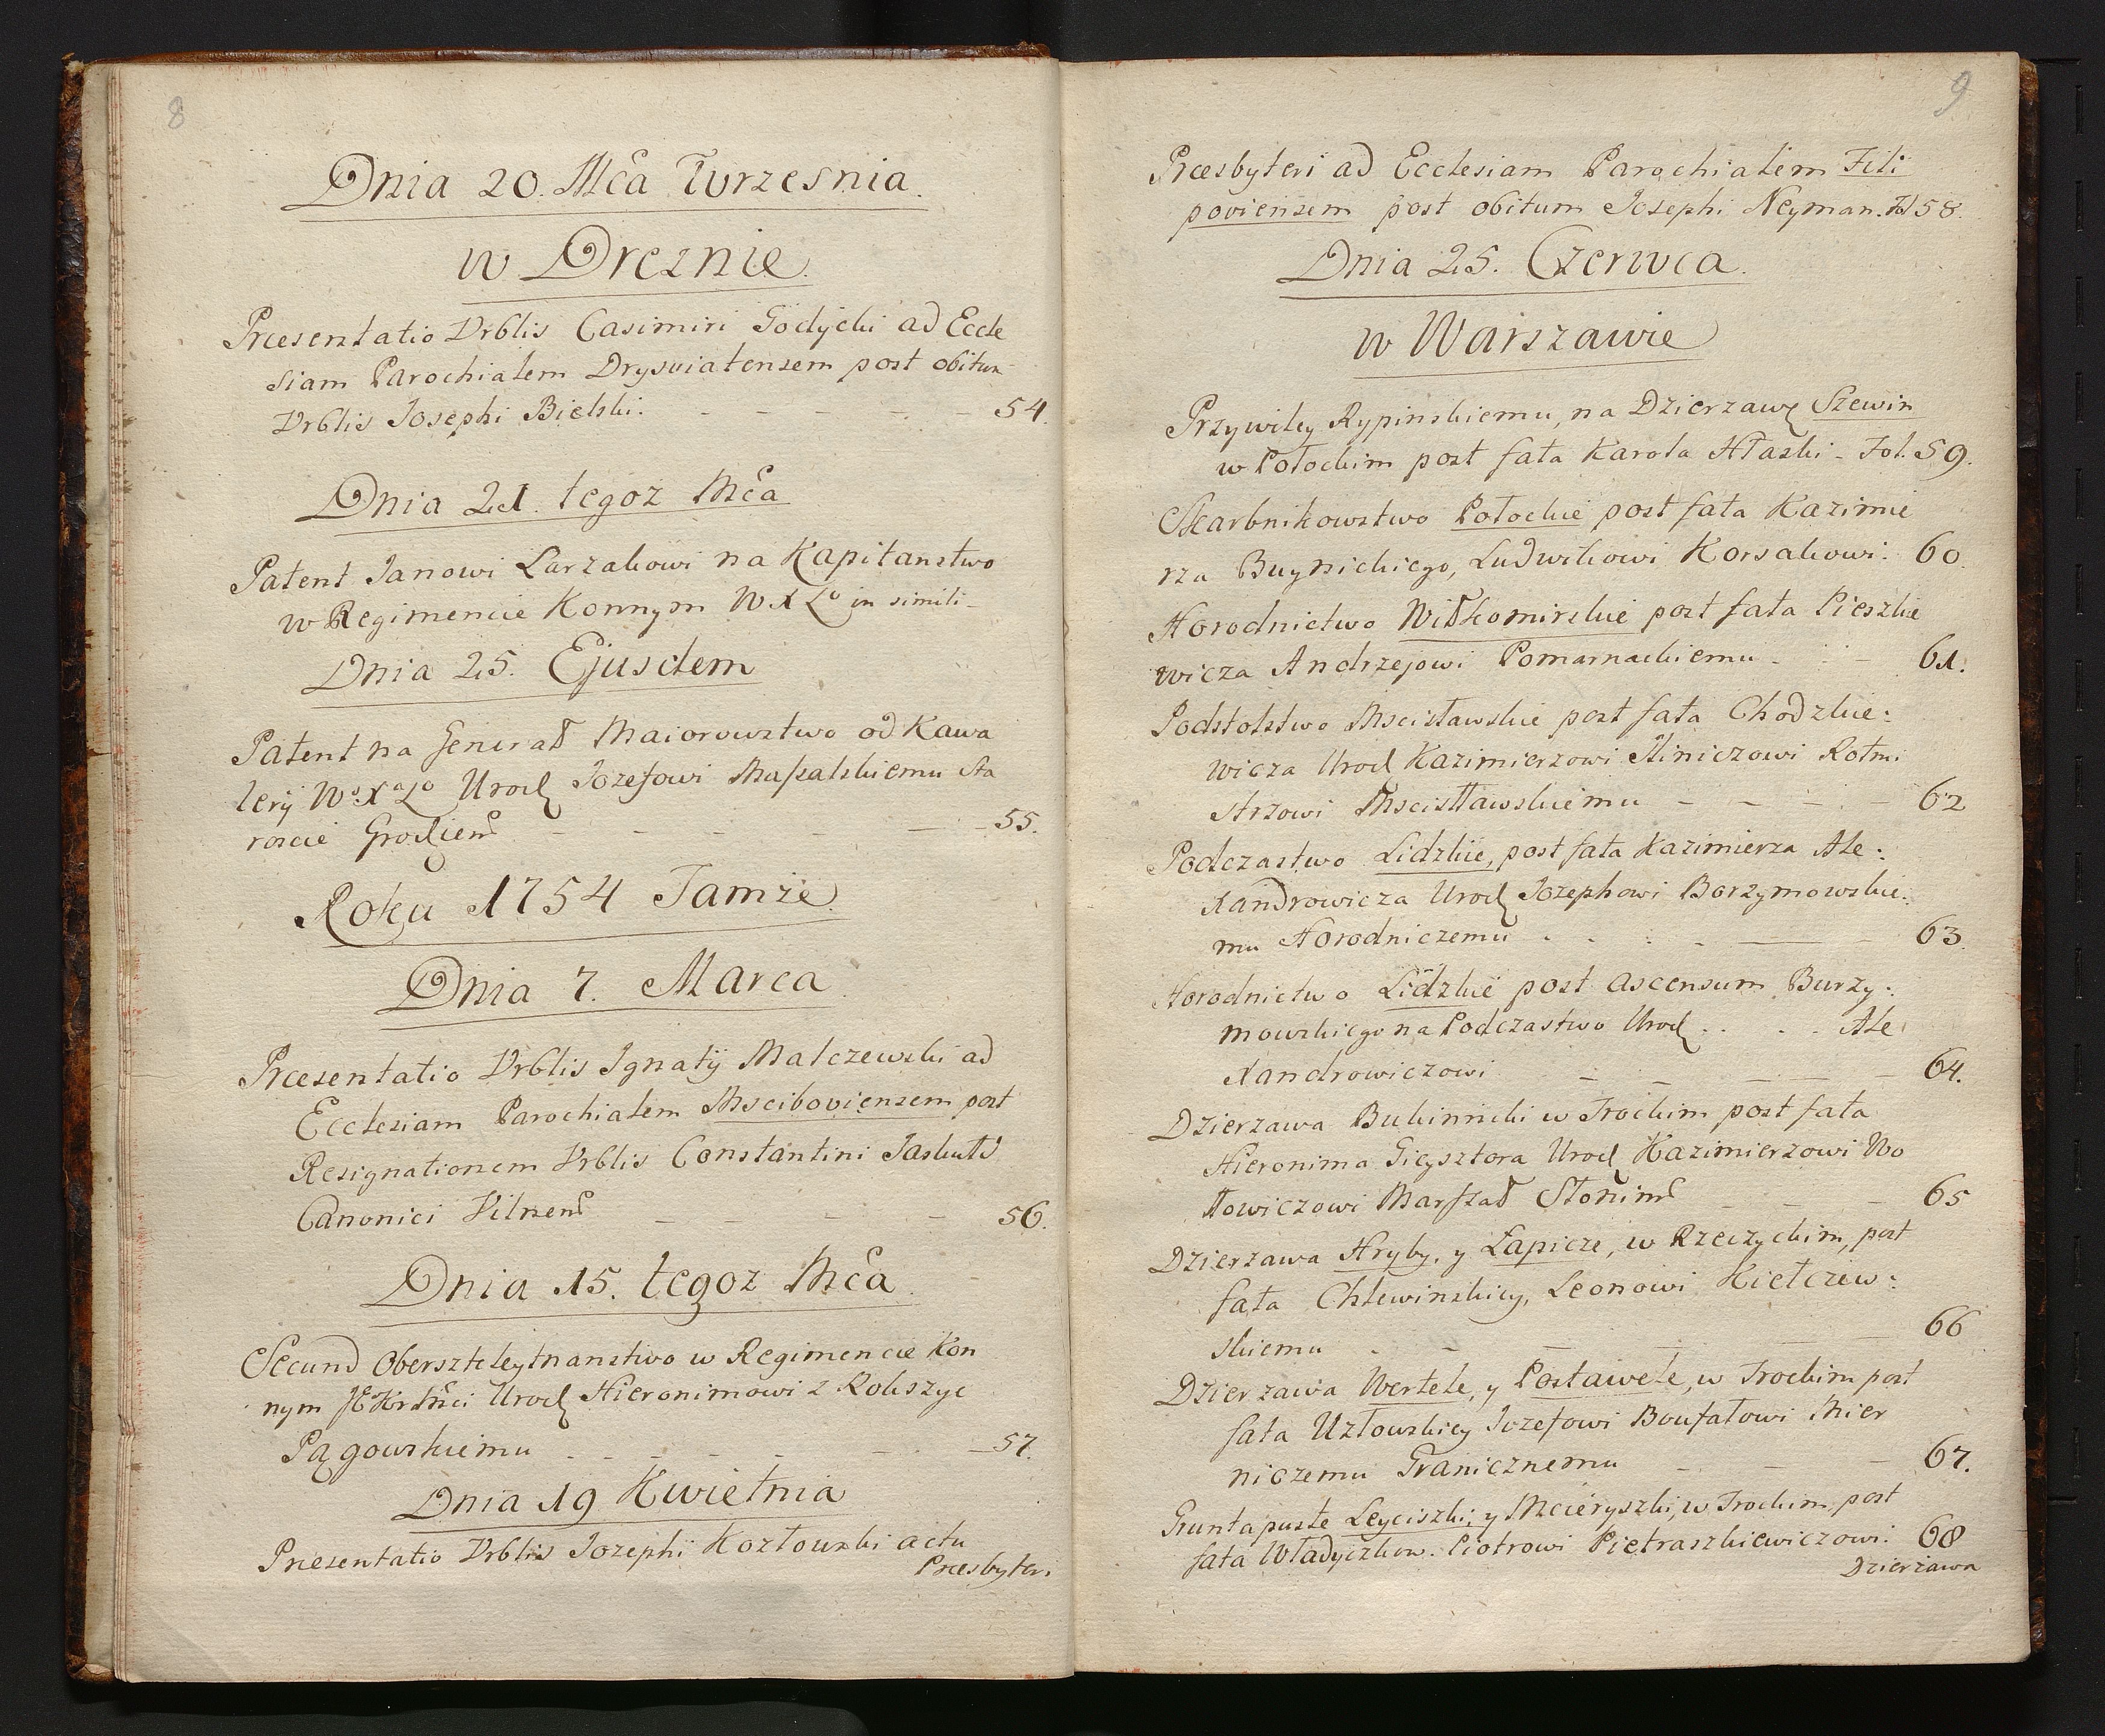 8
Dnia 20. Mca Wrzesnia.
w Dreznie.
Præsentatio Vrblis Casimiri Godÿcki ad Eccle
siam Parochialem Drysviatensem post obitum
Vrblis Josephi Bielski. - - - - - 54.
Dnia 21. tegoz Mca
Patent Janowi Larzakowi na Kapitanstwo
w Regimencie Konnym W X Lo in simili -
Dnia 25. Ejusdem
Patent na Generał Maiorowstwo od Kawa
lerÿ Wo Xa Lo Urodz Jozefowi Massalskiemu Sta
roscie Grodzien - - - - - - 55.
Roku 1754 Tamże.
Dnia 7. Marca
Præsentatio Vrblis Ignatÿ Malczewski ad
Ecclesiam Parochialem Mscibouiensem post
Resignationem Vrblis Constantini Jaskułd
Canonici Vilnen - - - - 56.
Dnia 15. tegoz Mca
Secund Oberszteleytnanstwo w Regimencie Kon
nym JKrMci Urodz Hieronimowi z Rokszyc
Pągowskiemu - - - - - - 57.
Dnia 19 Kwietnia
Præsentatio Vrblis Jozephi Kozłouski actu
Præsbyter.
9
Præsbyteri ad Ecclesiam Parochialem Fili
pouiensem post obitum Josephi Neyman. Fol 58.
Dnia 25. Czerwca.
w Warszawie
Przywiley Rypinskiemu, na Dzierzawę Szewin
w Połockim post fata Karola Hłaski - Fol. 59.
Skarbnikowstwo Połockie post fata Kazimie
rza Buynickiego, Ludwikowi Korsakowi: 60.
Horodnictwo Wiłkomirskie post fata Pieszkie
wicza Andrzejowi Pomarnackiemu - - - 61.
Podstolstwo Mscisławskie post fata Chodzkie:
wicza Urodz Kazimierzowi Iliniczowi Rotmi
strzowi Mscisłlawskiemu - - - - 62
Podczastwo Lidzkie, post fata Kazimierza Ale:
xandrowicza Urodz Jozephowi Borzymowskie:
mu Horodniczemu . . . - - - 63.
Horodnictwo Lidzkie post ascensum Burzy:
mowskiego na Podczastwo Urodz . . . . Ale
xandrowiczowi - - - - - 64.
Dzierzawa Bukinniki w Trockim post fata
Hieronima Gieysztora Urodz Kazimierzowi Wo
łłowiczowi Marszał Słonim - - - 65
Dzierzawa Hryby, y Łapicze, w Rzeczyckim, post
fata Chlewinskiey, Leonowi Kiełczew:
skiemu . - - - - - 66
Dzierzawa Wertele, y Postawele, w Trockim post
fata Uzłowskiey Jozefowi Boufałowi Mier
niczemu Granicznemu - - - 67.
Grunta puste Leyciszki, y Mcieryszki, w Trockim, post
fata Władyczkow. Piotrowi Pietraszkiewiczowi: 68
Dzierżawa